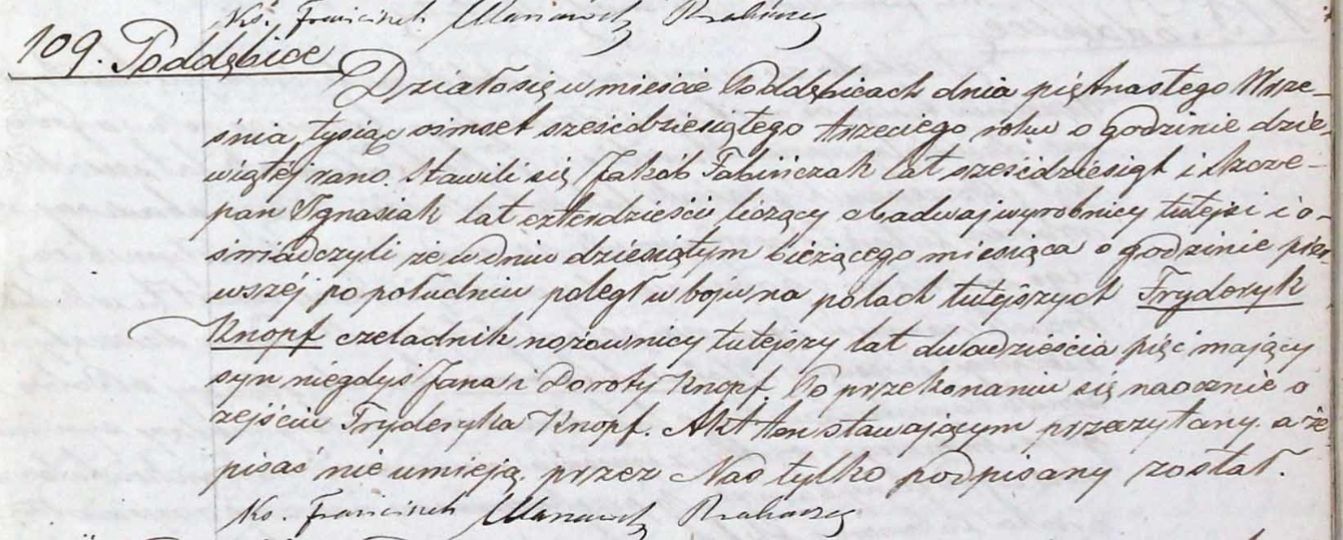 Ks. Franciszek
109. Poddębice
Działo się w mieście Poddębicach dnia piętnastego Wrze-
śnia, tysiąc ośmset sześćdziesiątego trzeciego roku o godzinie dzie-
wiątéj rano. Stawili się Jakób Fabińczak lat sześćdziesiąt i Szcze-
pan Ignasiak lat czterdzieści liczący obadwaj wyrobnicy tutejsi i o-
świadczyli że w dniu dziesiątym bieżącego miesiąca o godzinie pier
wszéj po południu poległ w boju na polach tutejszych Fryderyk
Knopf czeladnik nożowniczy tutejszy lat dwadzieścia pięć mający
syn niegdyś Jana i Doroty Knopf. Po przekonaniu się naocznie o
zejściu Fryderyka Knopf. Akt ten stawającym przeczytany. a że
pisać nie umieją. przez Nas tylko podpisany został.
Ks. Franciszek